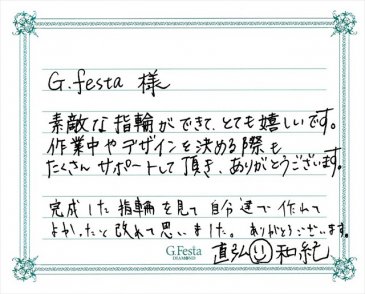 G.festa 様
素敵な指輪ができて、とても嬉しいです。
作業中やデザインを決める際も
たくさんサポートして頂き、ありがとうございます。
完成した指輪を見て自分達で作れて
よかったと改めて思いました。ありがとうございます。
G.Festa
DIAMOND
直弘 和紀